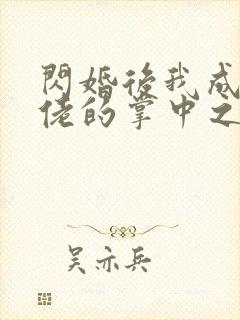 閃婚後我成
佬的掌中之
吴亦兵